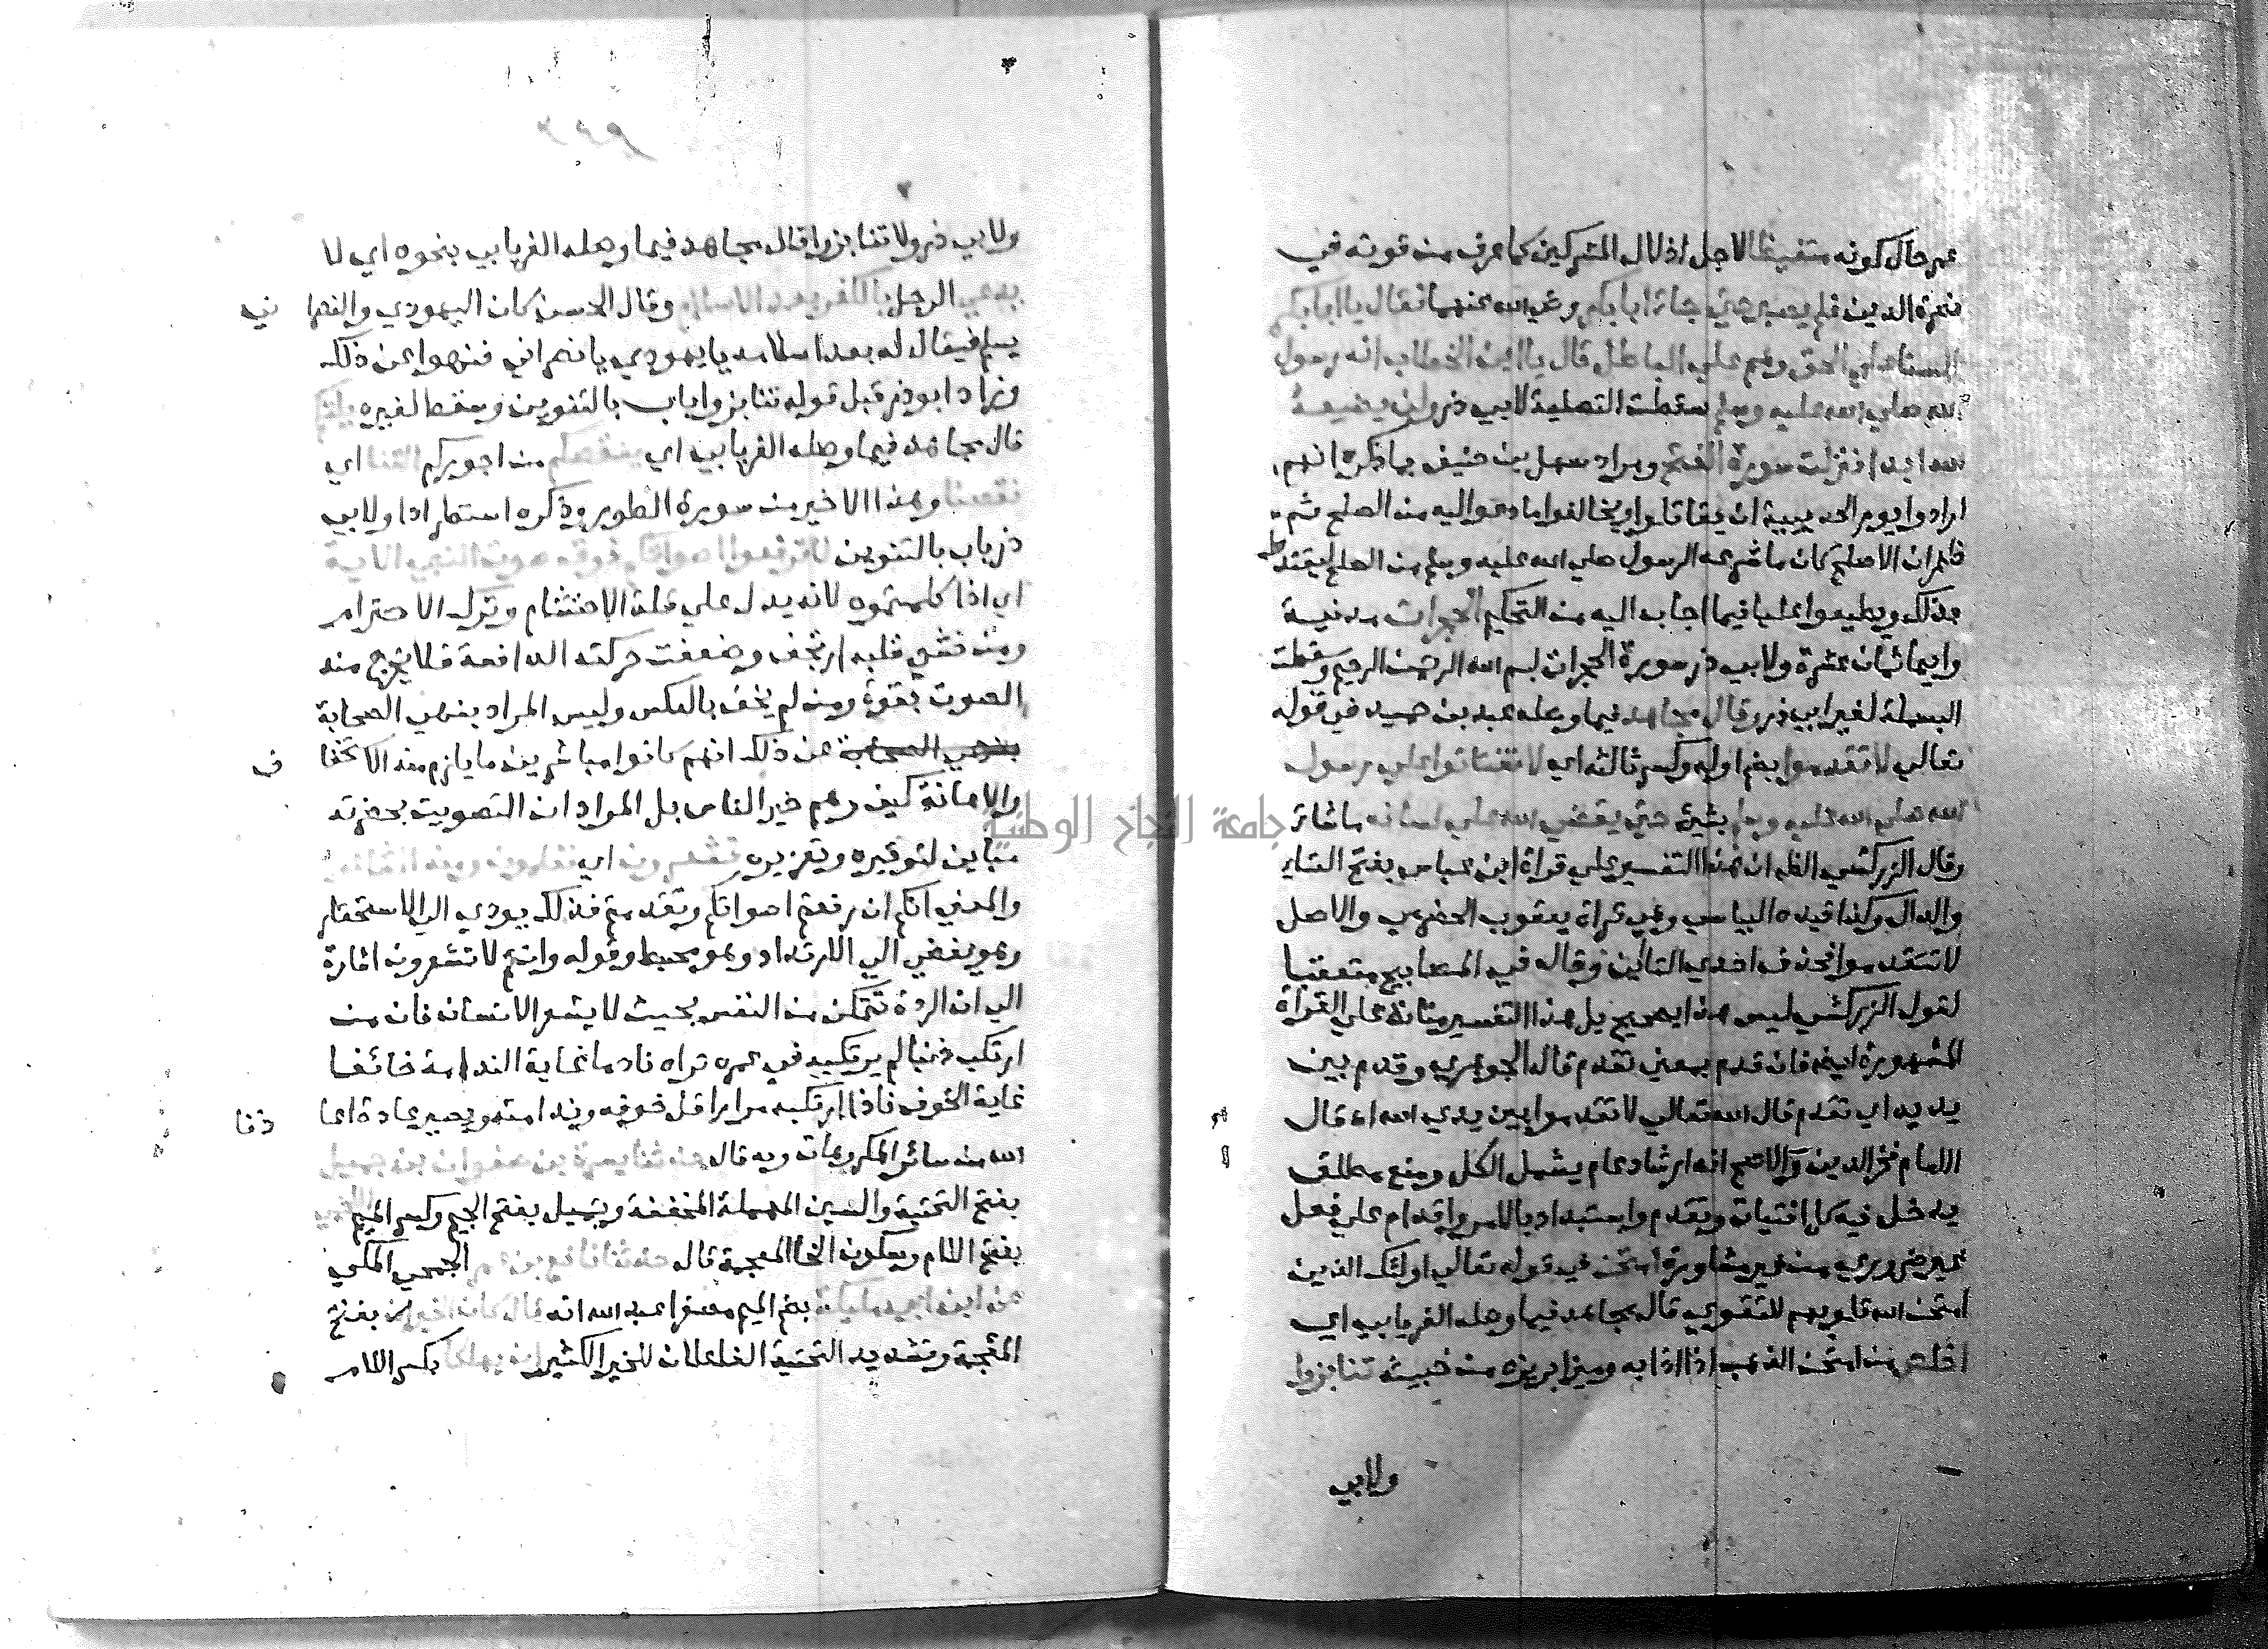 عمر حال كونه متغيظا لاجل اذلال المشركين كما عرف من قوته في
نصرة الدين فلم يصبر حتي جاء ابا بكر رضي الله عنهما فقال يا ابا بكر
السنا علي الحق وهم علي الباطل قال يا ابن الخطاب انه رسول
الله صلي الله عليه وسلم سقطت التصلية لابي ذر ولن يضيعه
الله ابدا فنزلت سورة الفتح ومراد سهل بن حنيف بما ذكره انهم
ارادوا يوم الحديبية ان يقاتلوا ويخالفوا ما دعوا اليه من الصلح ثم
ظهر ان الاصلح كان ما شرعه الرسول صلي الله عليه وسلم من الصلح ليقتدوا
بذلك ويطيعوا عليا فيما اجاب اليه من التحكيم الحجرات مدنية
وايها ثمان عشرة ولابي ذر سورة الحجرات بسم الله الرحمن الرحيم وسقطت
البسملة لغير ابي ذر وقال مجاهد فيما وصله عبد بن حميد في قوله
تعالي لا تقدموا بضم اوله وكسر ثالثه اي لا تفتاتوا علي رسول
الله صلي الله عليه وسلم بشيء حتي يقضي الله علي لسانه ما شاء
وقال الزركشي الظاهر ان هذا التفسير علي قراة ابن عباس بفتح التاء
والدال وكذا قيده البياسي وهي قراة يعقوب الحضرمي والاصل
لا تتقدموا فحذف احدي التائين وقال في المصابيح متعقبا
لقول الزركشي ليس هذا بصحيح بل هذا التفسير متات علي القراة
المشهورة ايضا فان قدم بمعني تقدم قال الجوهري وقدم بين
يديه اي تقدم قال الله تعالي لا تقدموا بين يدي الله اه قال
الامام فخر الدين والاصح انه ارشاد عام يشمل الكل ومنع مطلق
يدخل فيه كل افتيات وتقدم واستبداد بالامر واقدام علي فعل
غير ضروري من غير مشاورة امتحن في قوله تعالي اولئك الذين
امتحن الله قلوبهم للتقوي قال مجاهد فيما وصله الفريابي اي
اخلص من امتحن الذهب اذا اذابه وميز ابريزه من خبيثه تنابزوا
ولابي
ولابي ذر ولا تنابزوا قال مجاهد فيما وصله الفريابي بنحوه اي لا
يدعي الرجل بالكفر بعد الاسلام وقال الحسن كان اليهودي والنصرا ني
يسلم فيقال له بعد اسلامه يا يهودي يا نصراني فنهوا عن ذلك
وزاد ابوذر قبل قوله تنابزوا باب بالتنوين وسقط لغيره يلتكم
قال مجاهد فيما وصله الفريابي اي ينقصكم من اجوركم التنا اي
نقصنا وهذا الاخير من سورة الطور وذكره استطرادا ولابي
ذر باب بالتنوين لا ترفعوا اصواتكم فوق صوت النبي الاية
اي اذا كلمتموه لانه يدل علي قلة الاحتشام وترك الاحترام
ومن خشي قلبه ارتجف وضعفت حركته الدافعة فلا يخرج منه
الصوت بقوة ومن لم يخف بالعكس وليس المراد بنهي الصحابة
بنهي الصحابة عن ذلك انهم كانوا مباشرين ما يلزم منه الاستخفا ف
والاهانة كيف وهم خير الناس بل المراد ان التصويت بحضرته
مباين لتوقيره وتعزيره تشعرون اي تعلمون ومنه الشاعر
والمعني انكم ان رفعتم اصواتكم وتقدمتم فذلك يودي الي الاستحقار
وهو يفضي الي الارتداد وهو محبط وقوله وانتم لا تشعرون اشارة
الي ان الردة تتمكن من النفس بحيث لا يشعر الانسان فان من
ارتكب ذنبا لم يرتكبه في عمره تراه نادما غاية الندامة خائفا
غاية الخوف فاذا ارتكبه مرارا قل خوفه وندامته ويصير عادة اعا ذنا
الله من سائر المكروهات وبه قال حدثنا يسرة بن صفوان بن جميل
بفتح التحتية والسين المهملة المخففة وجميل بفتح الجيم وكسر الميم اللخمي
بفتح اللام وسكون الخا المعجمة قال حدثنا نافع بن عمر الجمحي المكي
عن ابن ابي مليكة بضم الميم مصغرا عبد الله انه قال كاد الخيران بفتح
المعجمة وتشديد التحتية الفاعلان للخير الكثير ان يهلكا بكسر اللام
جامعة النجاح الوطنية